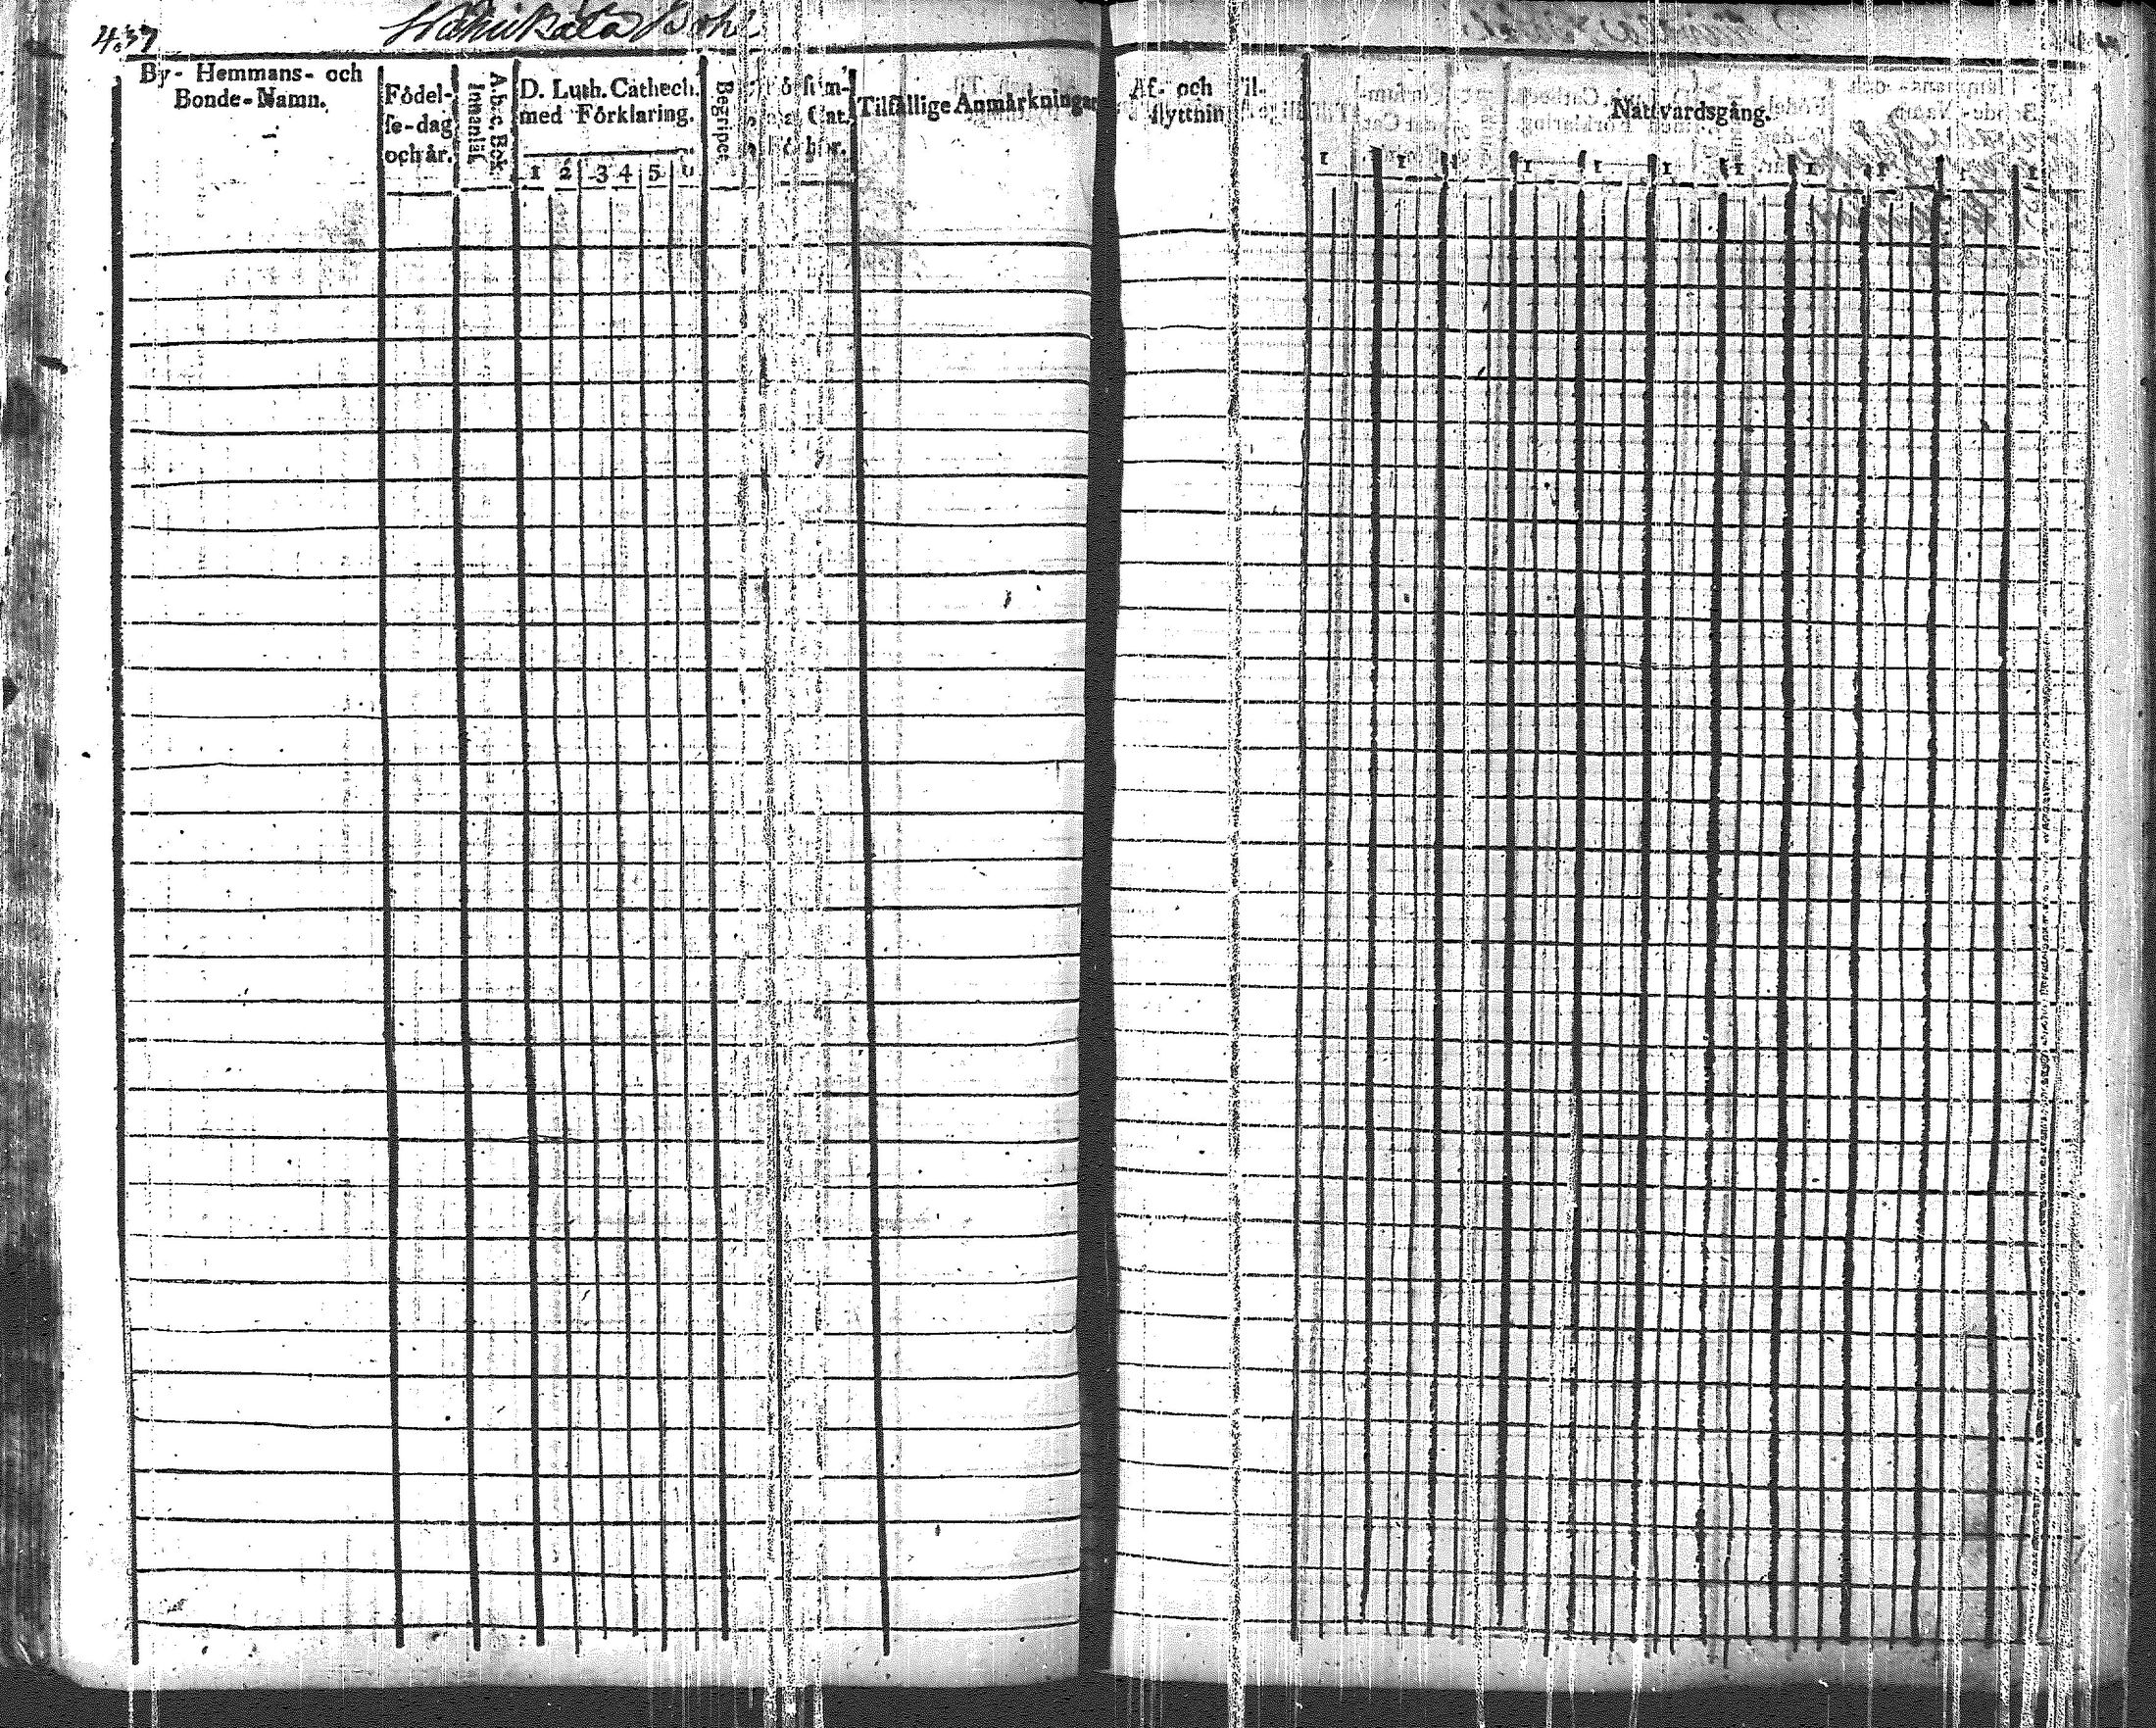 437
By- Hemmans- och
Bonde-Namn.
Födel-
se-dag
och år.
A.b.c.Bok
Innanläs.
D. Luth. Cathech.
med Förklaring.
1 2 3 4 5 6
Begripe
Tilfällige Anmärkningar
Af- och Til-
flyttnin
Nattvardsgång.
1 1 1 1 1 1 1 1 1 1